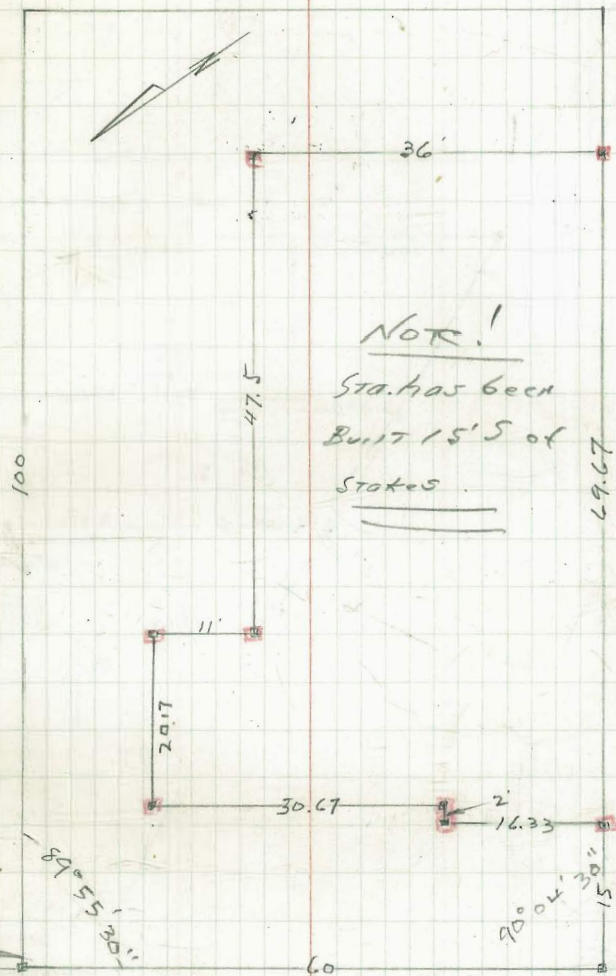 N
36'
47.5
100
NOTE!
Sta. has been
Built 15' S of
Stakes
69.67
11'
20.17
30.67
2'
16.33
89° 55' 30"
90° 04' 30"
15
60